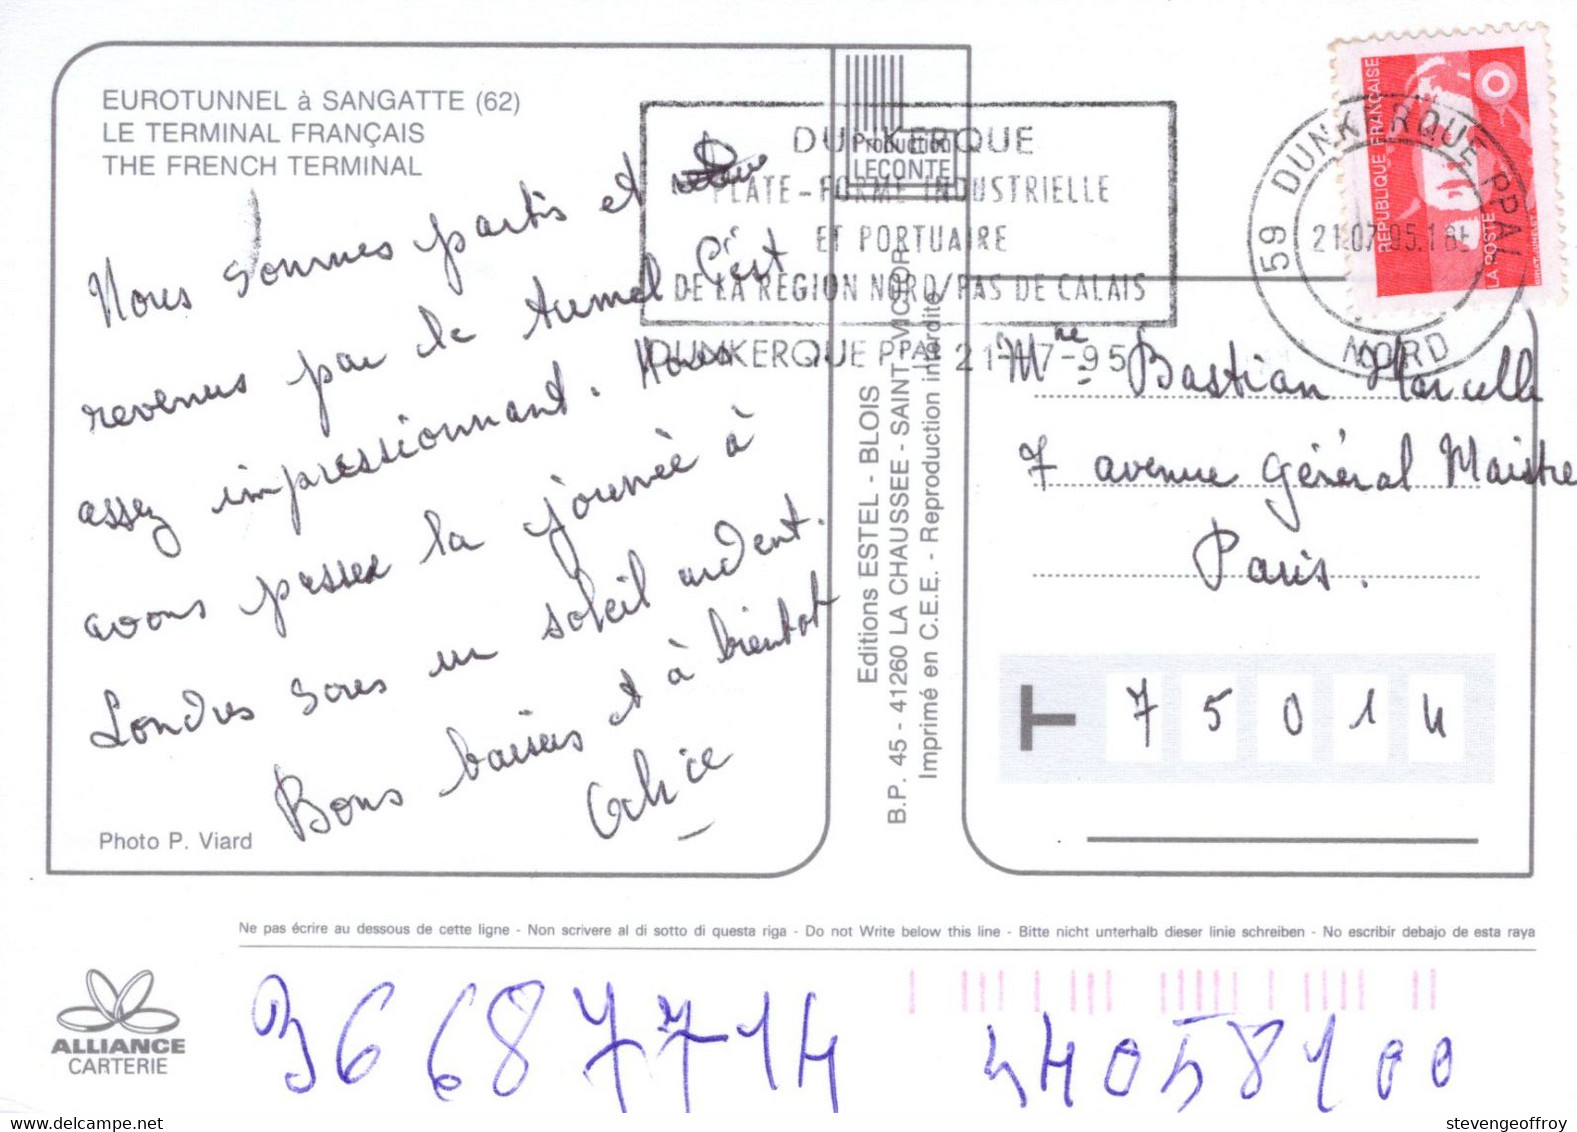 EUROTUNNEL à SANGATTE (62)
LE TERMINAL FRANÇAIS
THE FRENCH TERMINAL
Nous sommes partis et
revenus par le tunnel C'est
assez impressionnant. Nous
avons passer la journée à
Londres sous un soleil ardent.
Bons baisers et à bientot
Photo P. Viard
Production
LECONTE
DUNKERQUE
PLATE-FORME INDUSTRIELLE
ET PORTUAIRE
DE LA REGION NORD/PAS DE CALAIS
DUNKERQUE PPAL 21-07-95
Editions ESTEL - BLOIS
B.P. 45 - 41260 LA CHAUSSEE - SAINT-VICTOR
Imprimé en C.E.E. - Reproduction interdite
REPUBLIQUE FRANÇAISE
LA POSTE
59 DUNKERQUE PPAL
NORD
Mme Bastian Marcelle
7 avenue Général Maistre
Paris.
T 75014
Ne pas écrire au dessous de cette ligne - Non scrivere al di sotto di questa riga - Do not Write below this line - Bitte nicht unterhalb dieser linie schreiben - No escribir debajo de esta raya
ALLIANCE
CARTERIE
36687714 44058100
stevengeoffroy